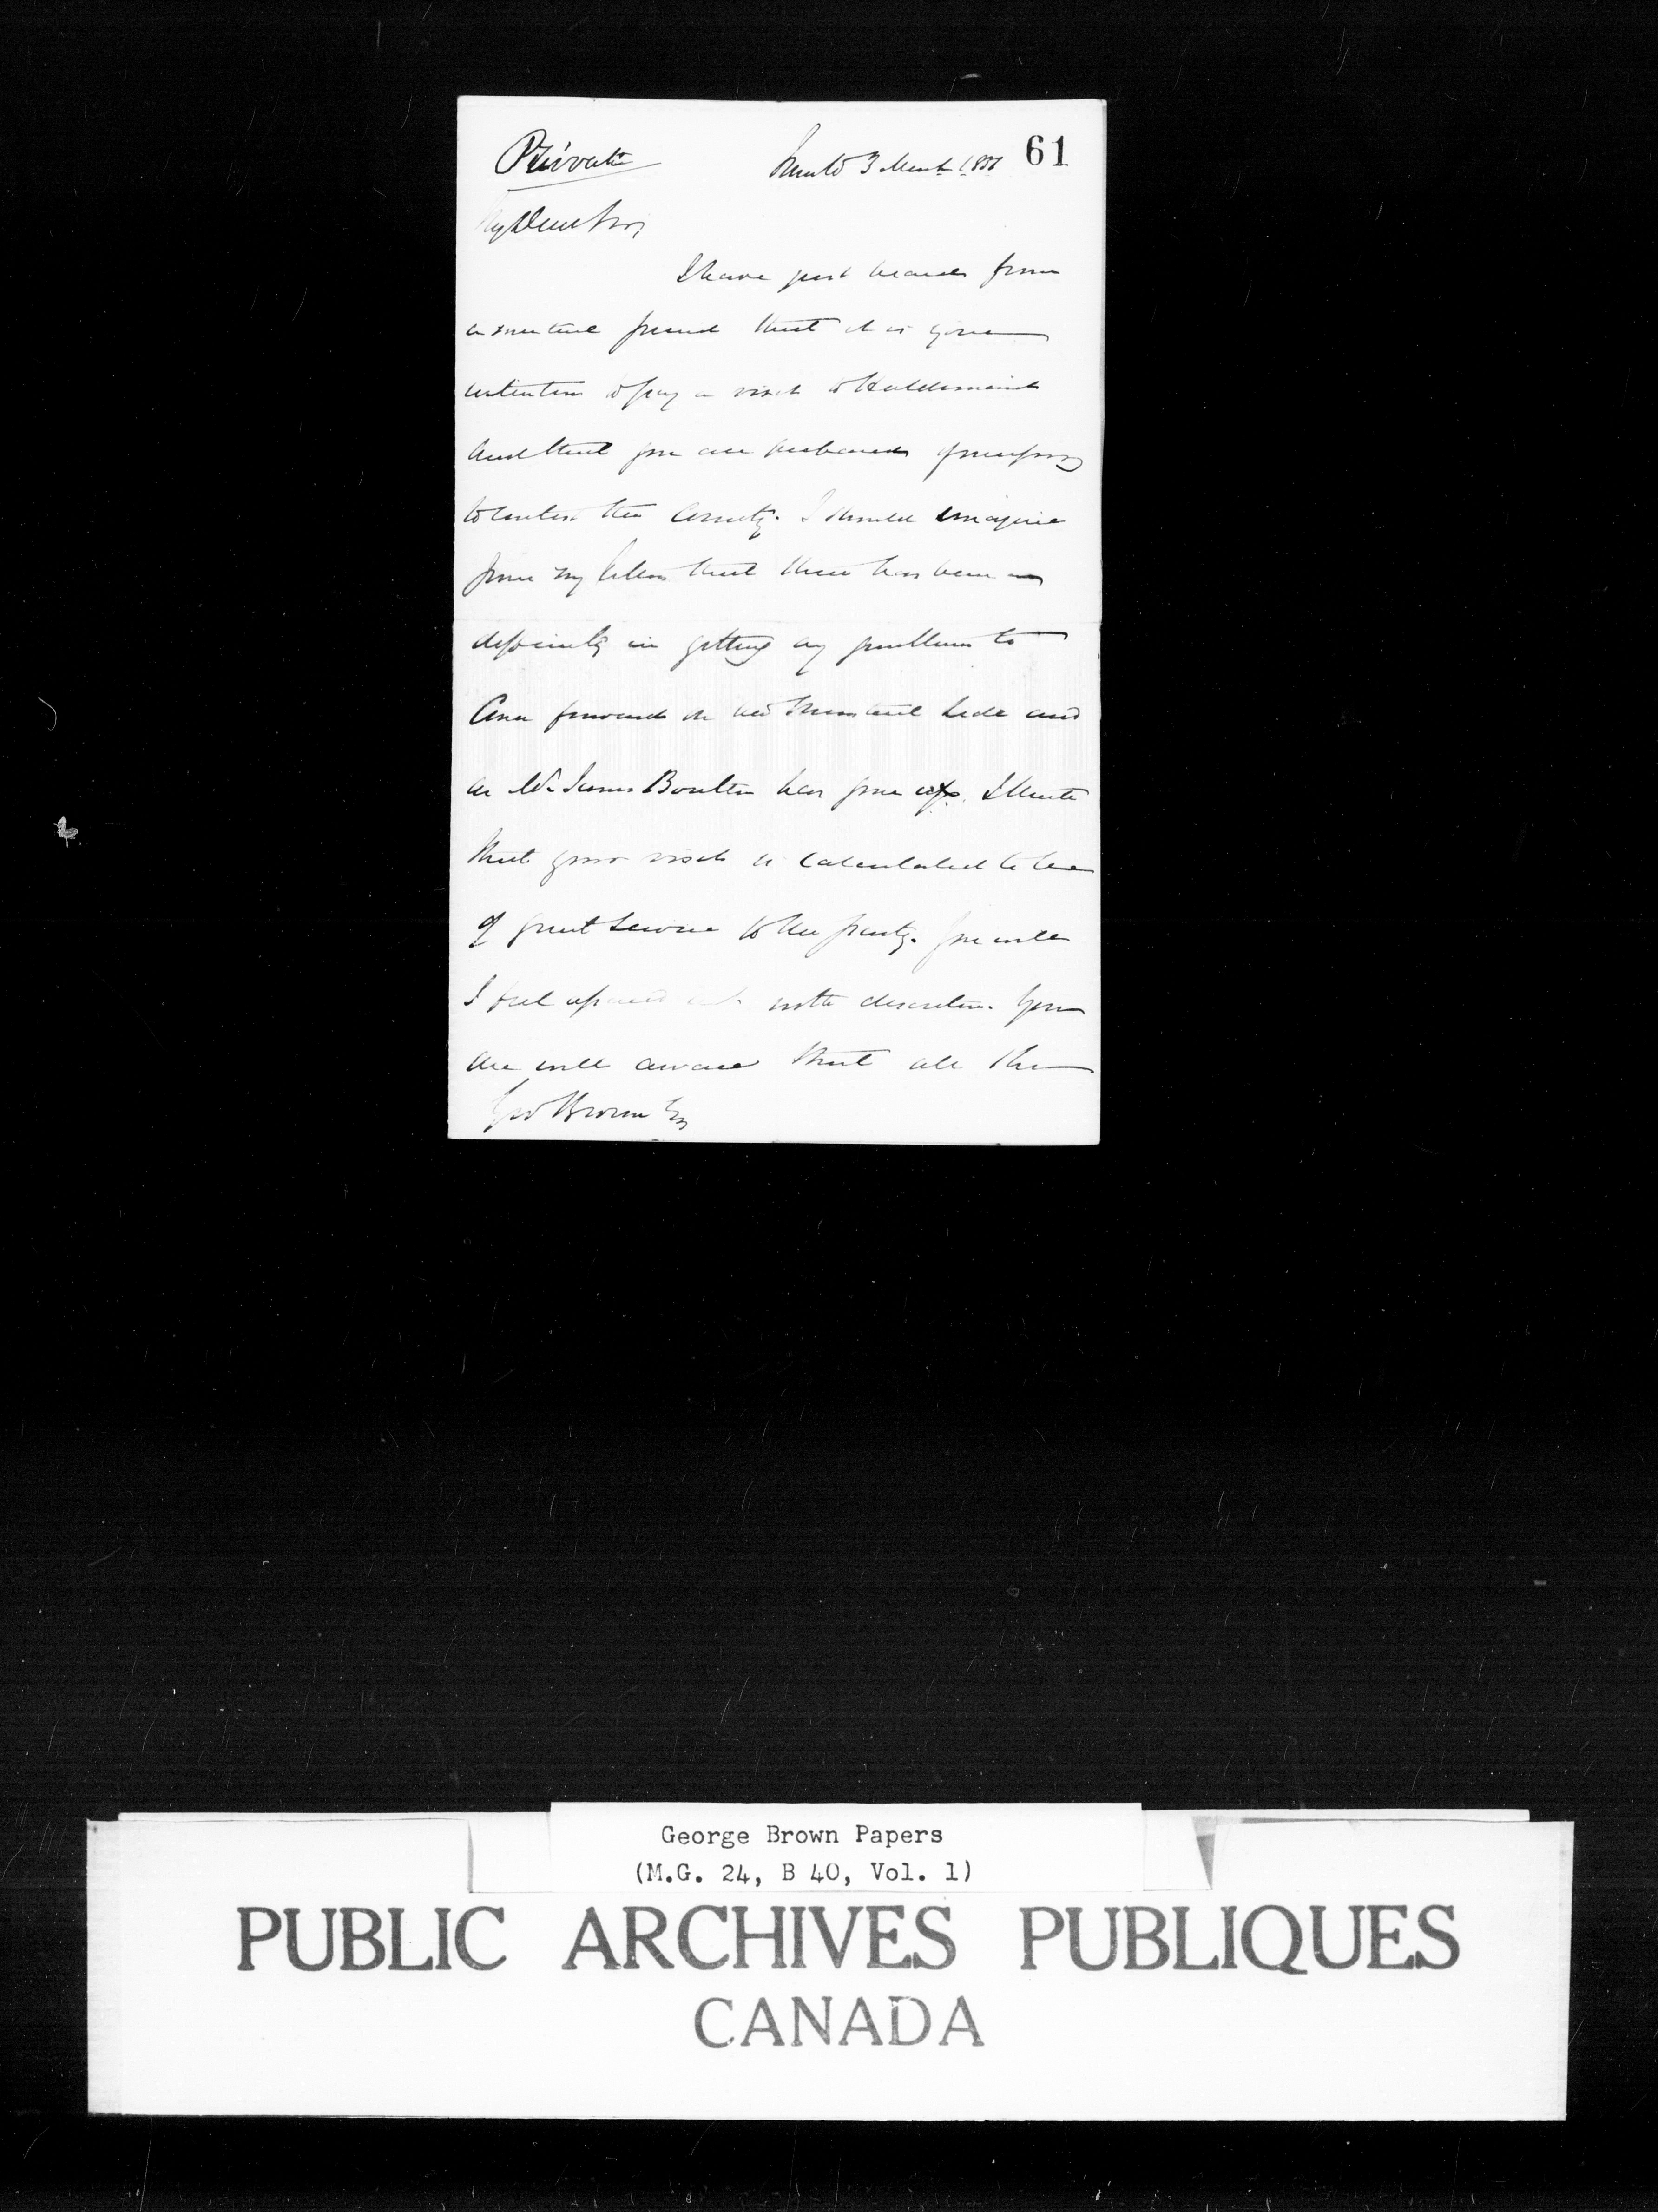 61
Private
Toronto 3 March 1851
My Dear Sir,
I have just heard from
a mutual friend that it is your
intention to pay a visit to Haldimand
and that you are yourself
to contest the County. I should imagine
from my letters that there has been no
difficulty in getting any gentleman to
Come forward on the Ministerial side and
as Mr James Boulton has gone up. I think
that your visit is calculated to be
of great service to the party. You will
I feel assured act with discretion. You
are well aware that all the
Geo Brown Esq
George Brown Papers
(M.G. 24, B 40, Vol. 1)
PUBLIC ARCHIVES PUBLIQUES
CANADA